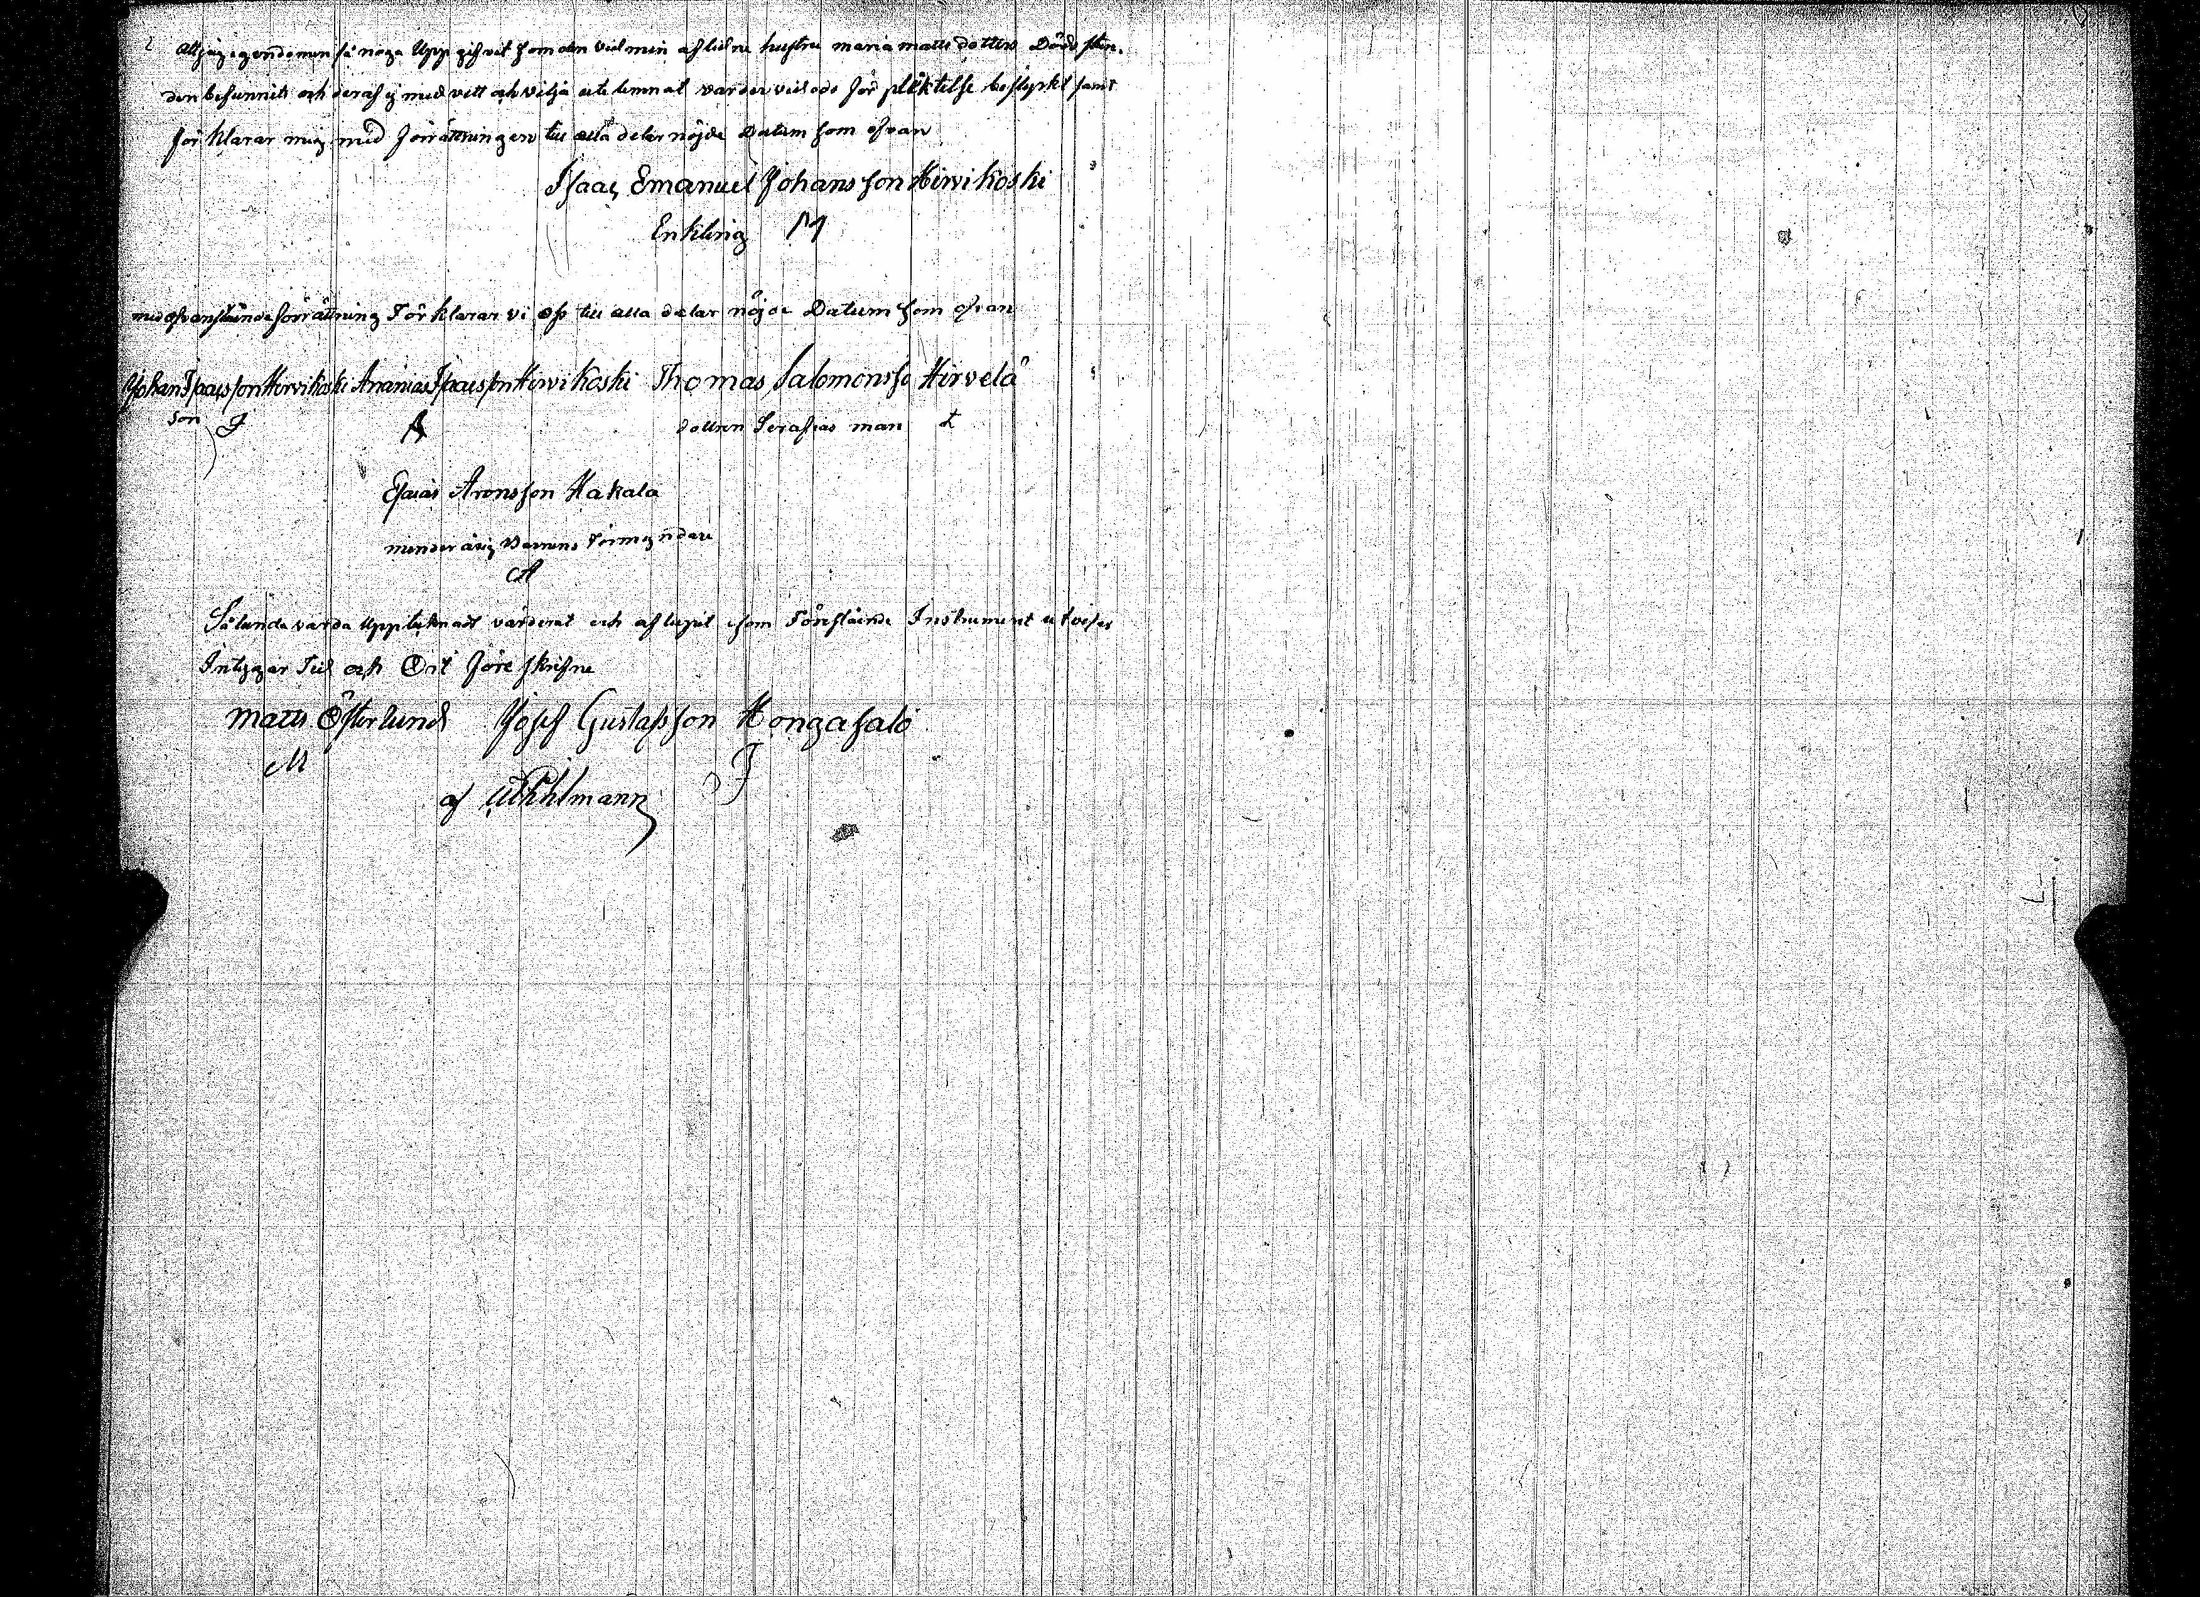 Att jag egendomen så noga Uppgifvit som den vid min aflidne hustru maria matts dotters Döds stun,
den befunnits och deraf ej med vett och vilja ute lemnat varder vid eds förpliktelse bestyrkt samt
för klarar mig med förrättningen till alla delar nöjde Datum som ofvan
Isaac Emanuel Johansson Hirvikoski
Enkling M
med ofvanstående förrättning Förklarar vi oss till alla delar nöjde Datum som ofvan
Johan Isacsson Hirvikoski Ananias Isacsson Hirvikoski Thomas Salomonsso Hirvelä
son J A dottren Serafias man
Esaias Aronsson Hakala
minderårig Barnens Förmyndare
A
Sålunda varda Upptecknadt värderat och aflupit som Förestående Instrument utvises
Intygar Tid och Ort före skrifne
Matts Österlund Josef Gustafsson Hongasalo
M J
af